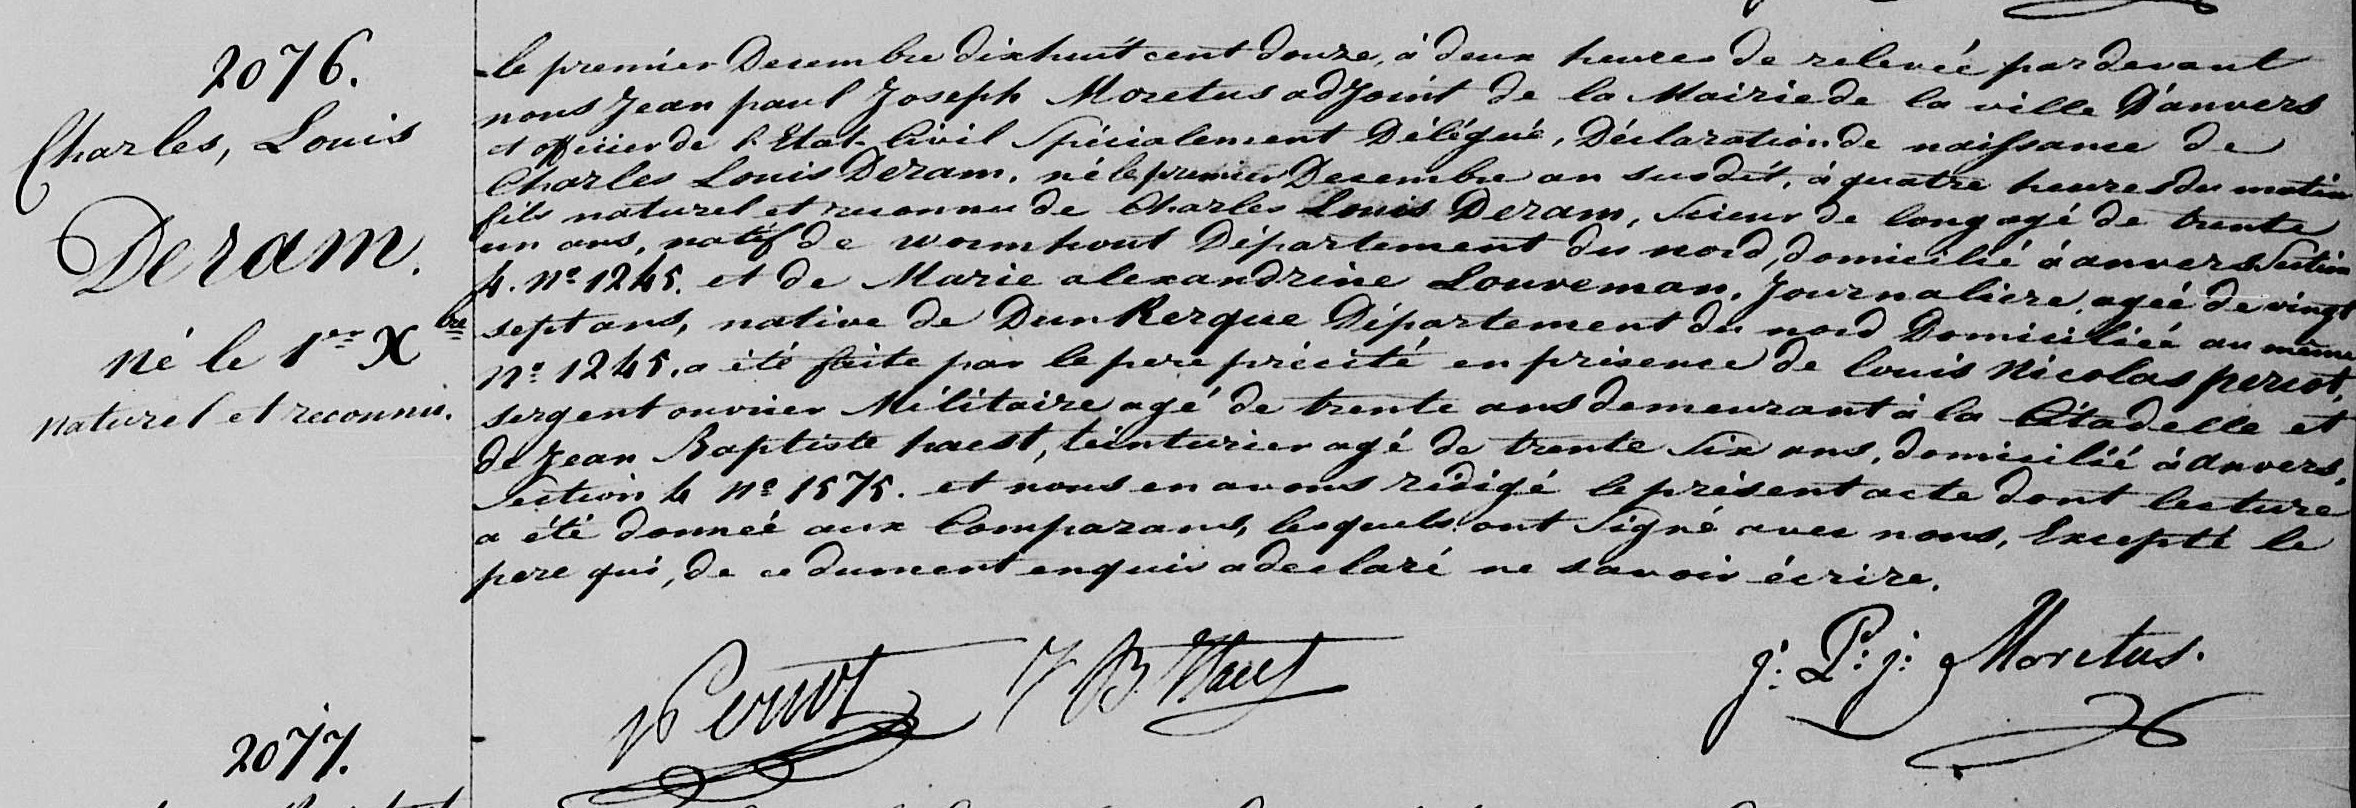 2076.
Charles, Louis
Deram.
né le 1er Xbre
naturel et reconnu.
le premier Decembre dixhuit cent douze, à deux heures de relevée pardevant
nous Jean paul Joseph Moretus adjoint de la Mairie de la ville D'anvers
et officier de l'Etat Civil Spécialement Délégué, Déclaration de naissance de
Charles Louis Deram, né le premier Decembre an susdit, à quatre heures du matin
fils naturel et reconnu de Charles Louis Deram, Scieur de long agé de trente
un ans, natif de wormhout Département du nord, domicilié à anvers Section
4. No 1245. et de Marie alexandrine Louveman, Journaliere, agée de vingt
sept ans, native de DunKerque Département du nord Domiciliée au même
No 1245. a été faite par le pere précité en présence de Louis Nicolas pernot,
sergent ouvrier Militaire agé de trente ans demeurant à la Citadelle et
de Jean Baptiste haest, teinturier agé de trente Six ans, domicilié à Anvers,
Section 4 No 1575. et nous en avons rédigé le présent acte dont lecture
a été donnée aux Comparans, lesquels ont Signé avec nous, Excepté le
pere qui, de ce dument enquis a declaré ne savoir écrire.
Pernot J B Haest J: P: J: Moretus.
2077.